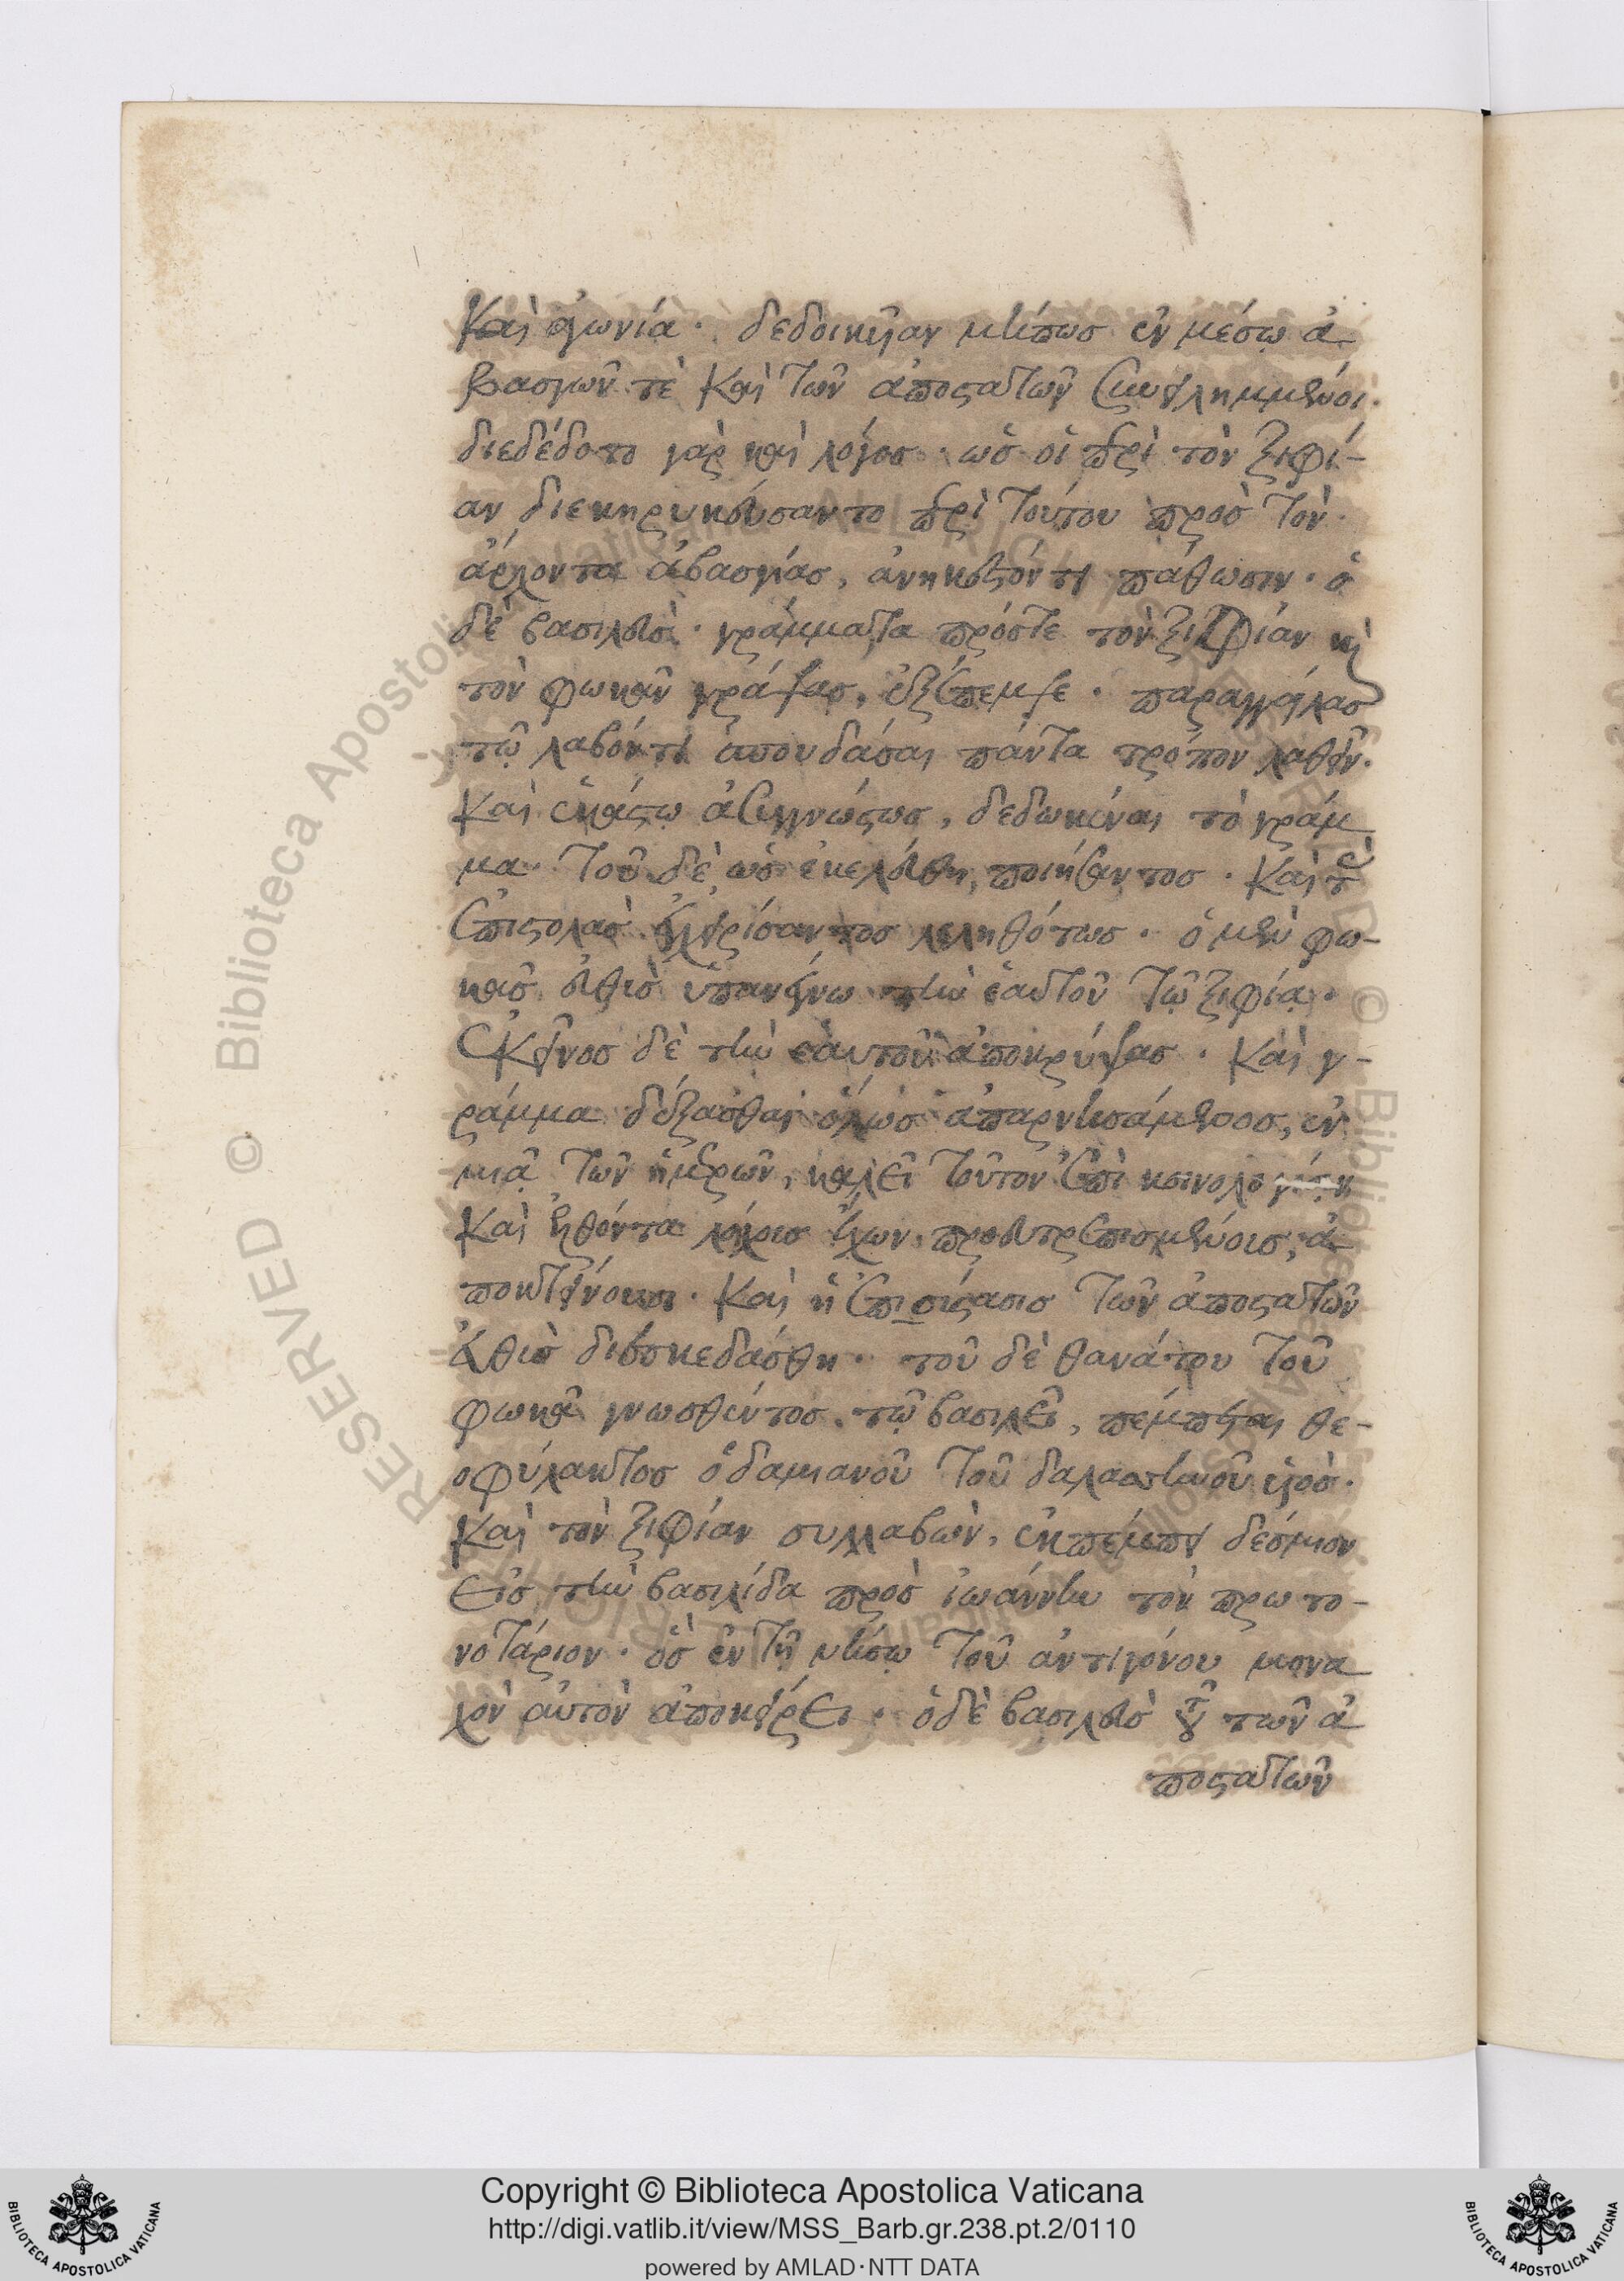 καὶ ἀγωνία· δεδοικῆαν μήπως ἐν μέσω ἀ
βασγῶν τὲ καὶ τῶν ἀποστατῶν συνειλημμένοι·
διεδέδοτο γὰρ καὶ λόγος· ὡς οἱ περὶ τὸν ξιφί-
αν διεκηρυκεύσαντο περὶ τούτου πρὸς τὸν
ἄρχοντα ἀβασγίας, ἀνήκεστόν τι πάθωσιν· ὁ
δὲ βασιλεὺς· γράμματα πρόστε τὸν ξιφίαν καὶ
τὸν φωκᾶν γράψας, ἐξέπεμψε· παραγγείλας
τῷ λαβόντι σπουδάσαι πάντα τρόπον λαθεῖν·
καὶ ἑκάστω ἀσυγγνώστως, δεδωκέναι τὸ γράμ
μα· τοῦ δὲ ὡς ἐκελεύσθη, ποιήσαντος· καὶ τὰς
ἐπιστολὰς ἐγχειρίσαντος λεληθότως· ὁ μὲν φω-
κᾶς εὐθὺς ὑπανέγνω τὴν ἑαυτοῦ τῷ ξιφίᾳ·
ἐκεῖνος δὲ τὴν ἑαυτοῦ ἀποκρύψας· καὶ γ-
ράμμα δέξασθαι ὅλως ἀπαρνησάμενος, ἐν
μιᾷ τῶν ἡμερῶν, καλεῖ τοῦτον ἐπὶ κοινολογίαν
καὶ ἐλθόντα λόχοις ἔχων προευτρεπισμένοις, ἀ-
ποκτείνουσι· καὶ ἡ ἐπισύστασις τῶν ἀποστατῶν
εὐθὺς διεσκεδάσθη· τοῦ δὲ θανάτου τοῦ
φωκᾶ γνωσθέντος τῷ βασιλεῖ, πέμπεται θε-
οφύλακτος ὁ δαμιανοῦ τοῦ δαλασσηνοῦ υἱός·
καὶ τὸν ξιφίαν συλλαβὼν, ἐκπέμπει δέσμιον
εἰς τὴν βασιλίδα πρὸς ἰωάννην τὸν πρωτο-
νοτάριον· ὃς ἐν τῇ νήσῳ τοῦ ἀντιγόνου μονα
χὸν αὐτὸν ἀποκείρει· ὁ δὲ βασιλεὺς τοῦ τῶν ἀ
ποστατῶν
Copyright © Biblioteca Apostolica Vaticana
http://digi.vatlib.it/view/MSS_Barb.gr.238.pt.2/0110
powered by AMLAD·NTT DATA